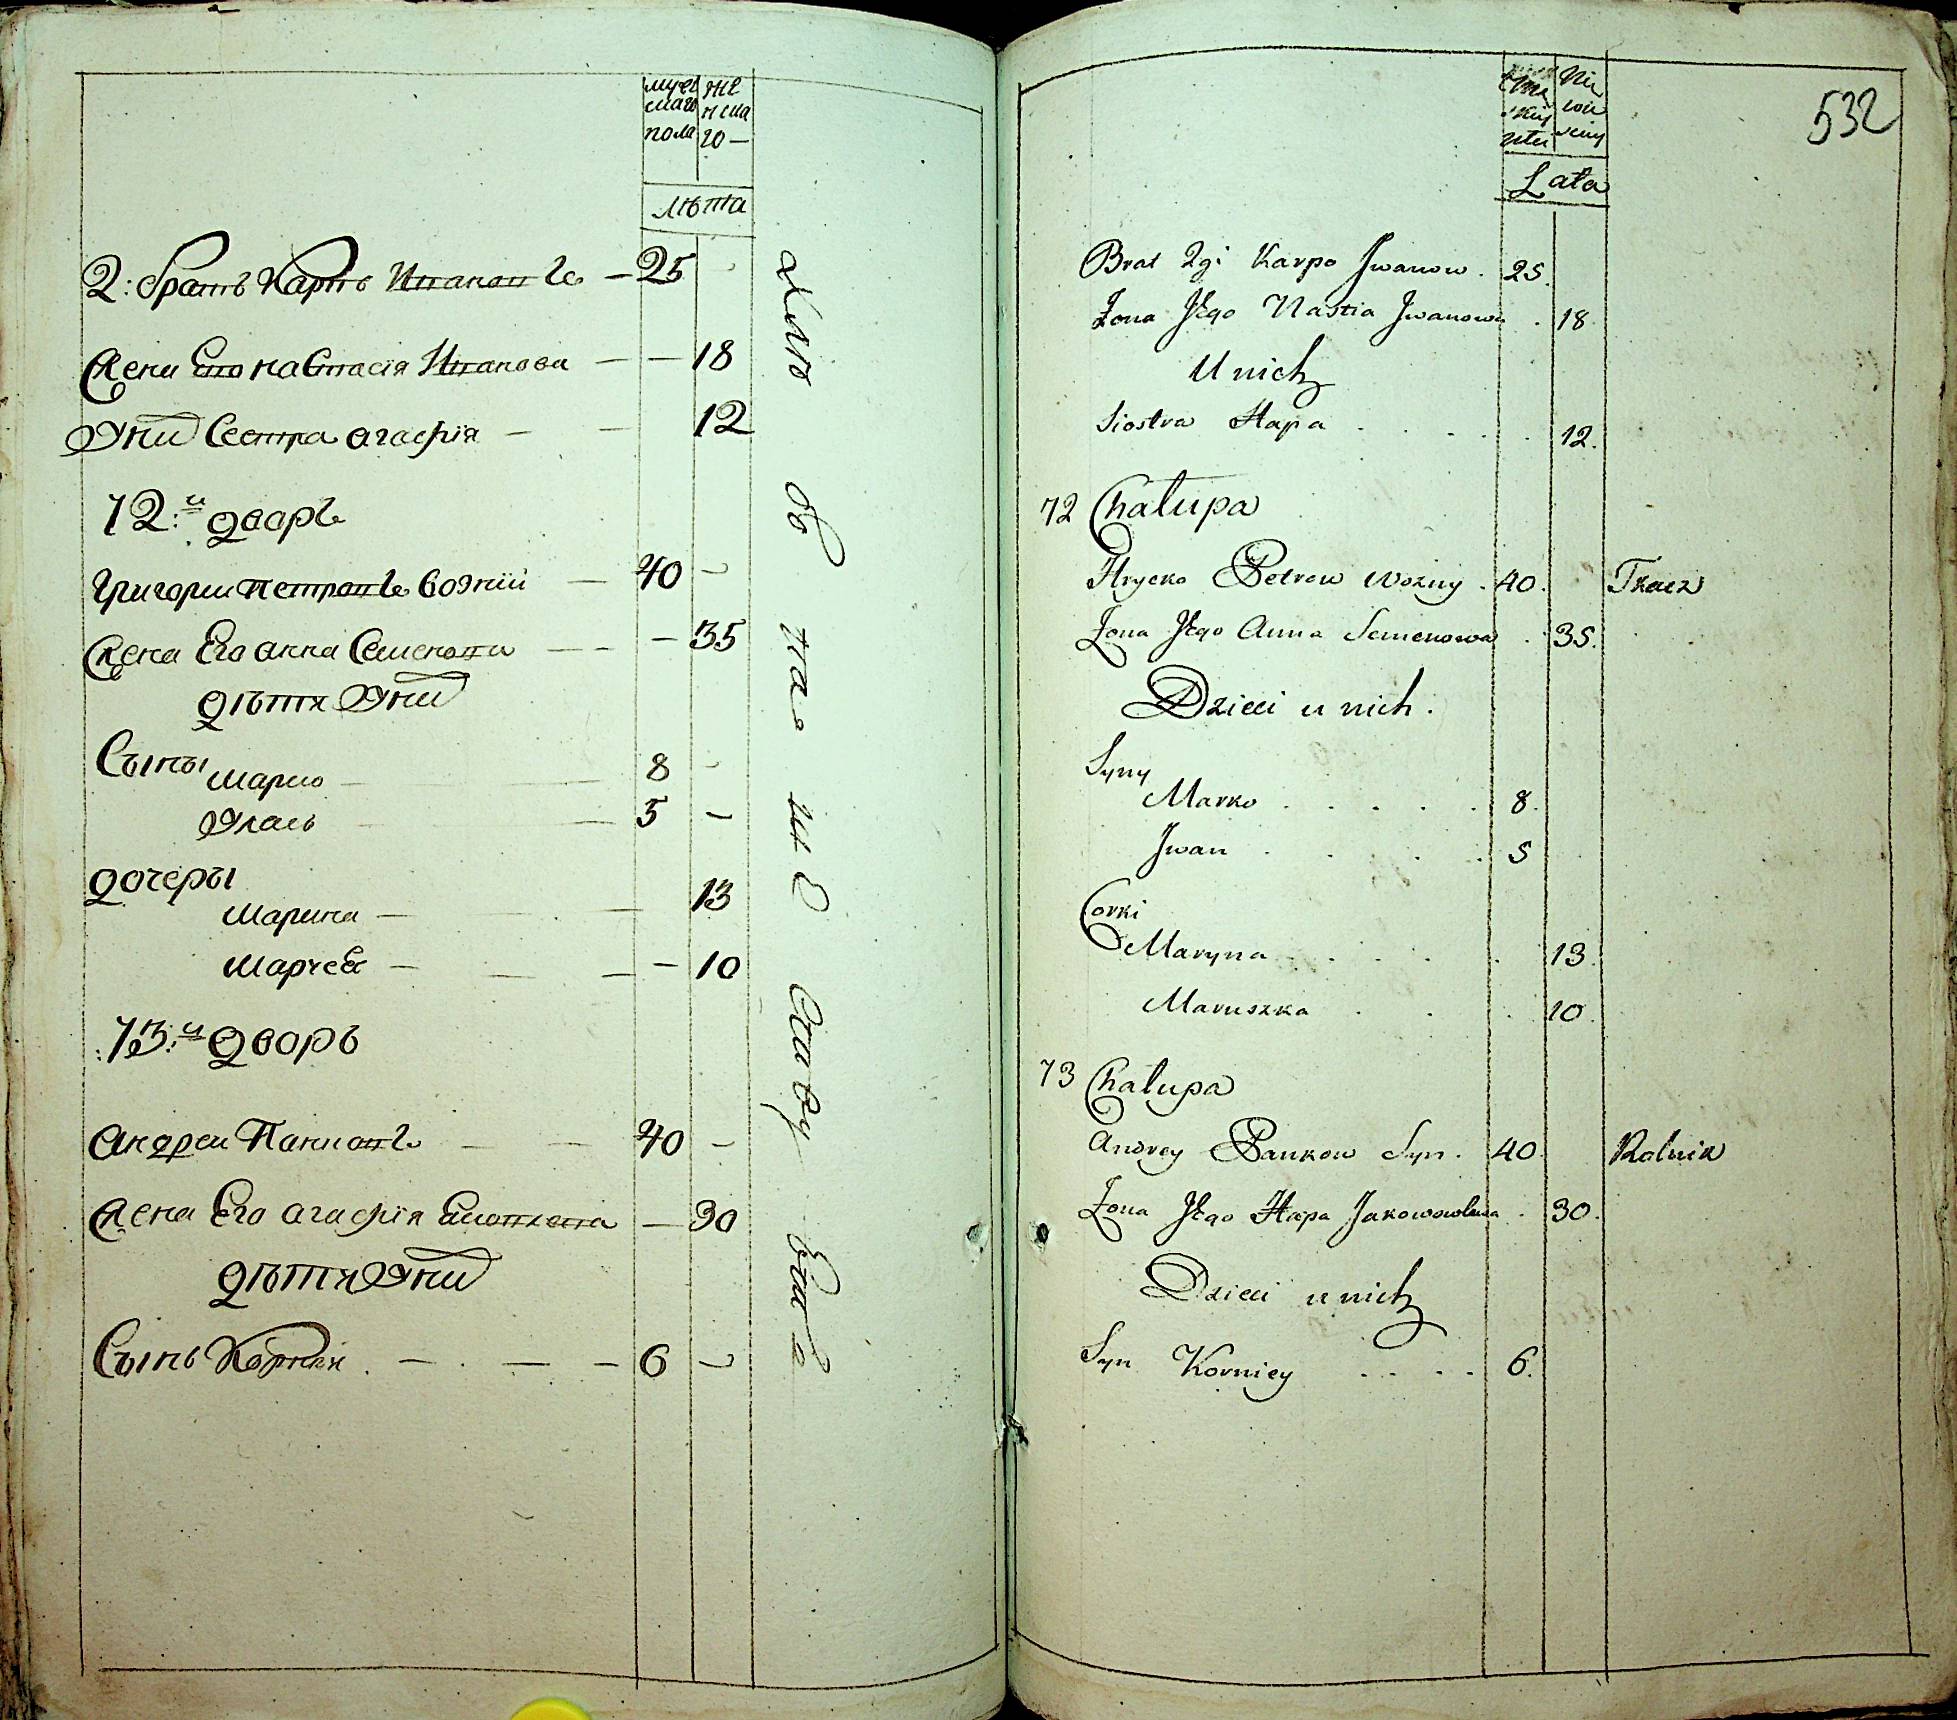 мужескаго пола
женскаго
лѣта
2: братъ Карпъ Ивановъ 25
Жена Его настасія Иванова 18
Уни Сестра агафія 12
72:й дворъ
Григорий петровъ возній 40
Жена Его анна Семенова 35
дѣти Уни
Сыны
марко 8
Улась 5
дочеры
марина 13
13:й дворъ
андрей Панковъ 40
Жена Его агафія 30
дѣти Уни
Сынъ Корней 6
532
Lata
Brat 2gi Karpo Jwanow. 25.
Żona Jego Nastia Jwanowa. 18
U nich
Siostra Hapa 12.
72 Chałupa
Hrycko Petrow Wozny. 40. Tkacz
Żona Jego Anna Semenowa. 35.
Dzieci u nich.
Syny
Marko 8.
Jwan 5
Corki
Maryna 13.
Maruszka 10
73 Chałupa
Andrey Pankow Syn. 40. Rolnik
Żona Jego Hapa 30.
Dzieci u nich
Syn Korniey 6.